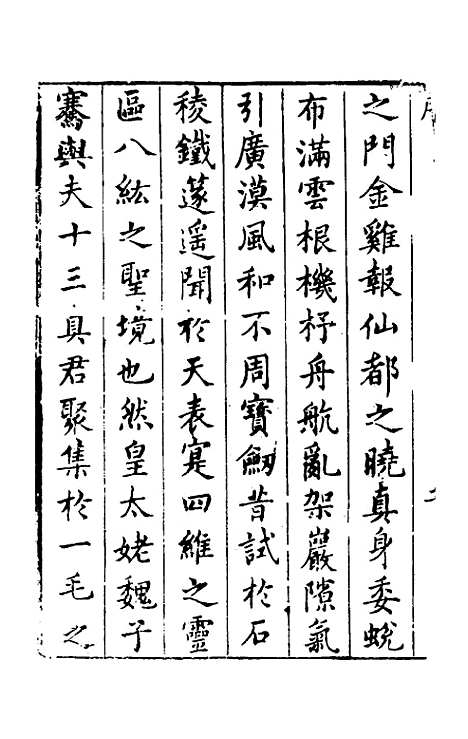 之門金雞報仙都之曉真身委蛻
布滿雲根機杼舟航亂架巖隙氣
引廣漠風和不周寶劒昔試於石
稜鐵篴遥聞於天表寔四維之靈
區八紘之聖境也然皇太姥魏子
騫與夫十三真君聚集於一毛之